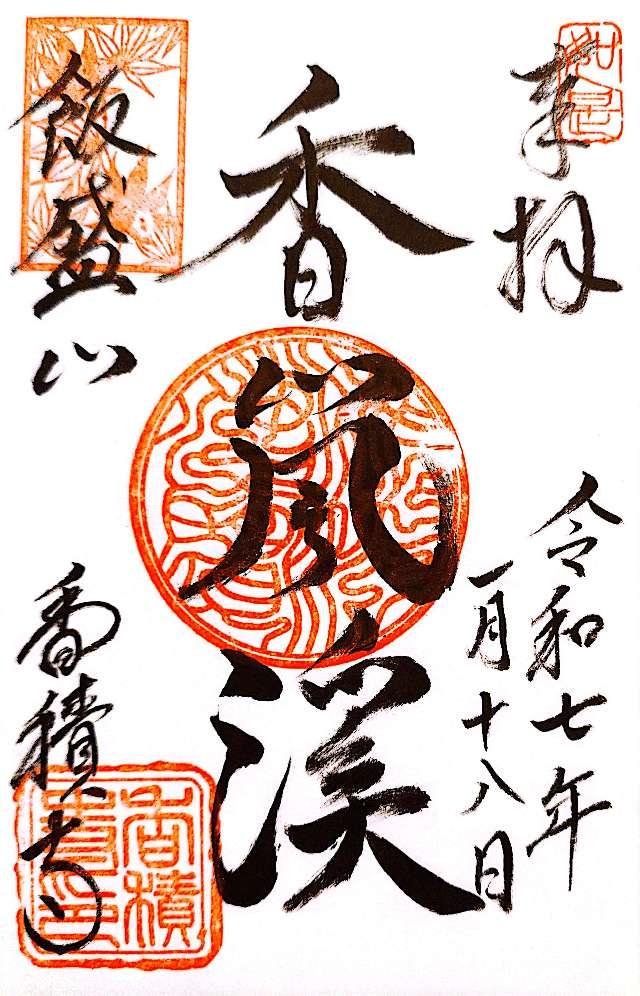 奉拝
令和七年
一月十八日
香嵐渓
飯盛山
香積寺
如是
香積
寺印